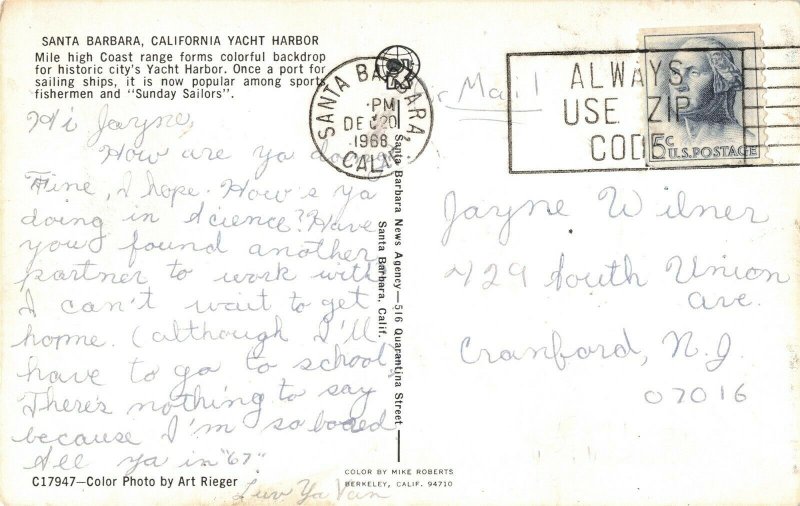 SANTA BARBARA, CALIFORNIA YACHT HARBOR
Mile high Coast range forms colorful backdrop
for historic city's Yacht Harbor. Once a port for
sailing ships, it is now popular among sports
fishermen and "Sunday Sailors".
Hi Jayne,
How are ya doing?
Fine, I hope. How's ya
doing in science? Have
you found another
partner to work with
I can't wait to get
home. (although I'll
have to go to school
There's nothing to say
because I'm so bored
See ya in "67"
Luv Ya Van
C17947—Color Photo by Art Rieger
SANTA BARBARA,
PM
DEC 20
1966
CALIF.
Santa Barbara News Agency—516 Quarantina Street
Santa Barbara, Calif.
COLOR BY MIKE ROBERTS
BERKELEY, CALIF. 94710
Mail
ALWAYS
USE ZIP
CODE
5c
U.S. POSTAGE
Jayne Wilner
729 South Union
ave.
Cranford, N.J.
07016